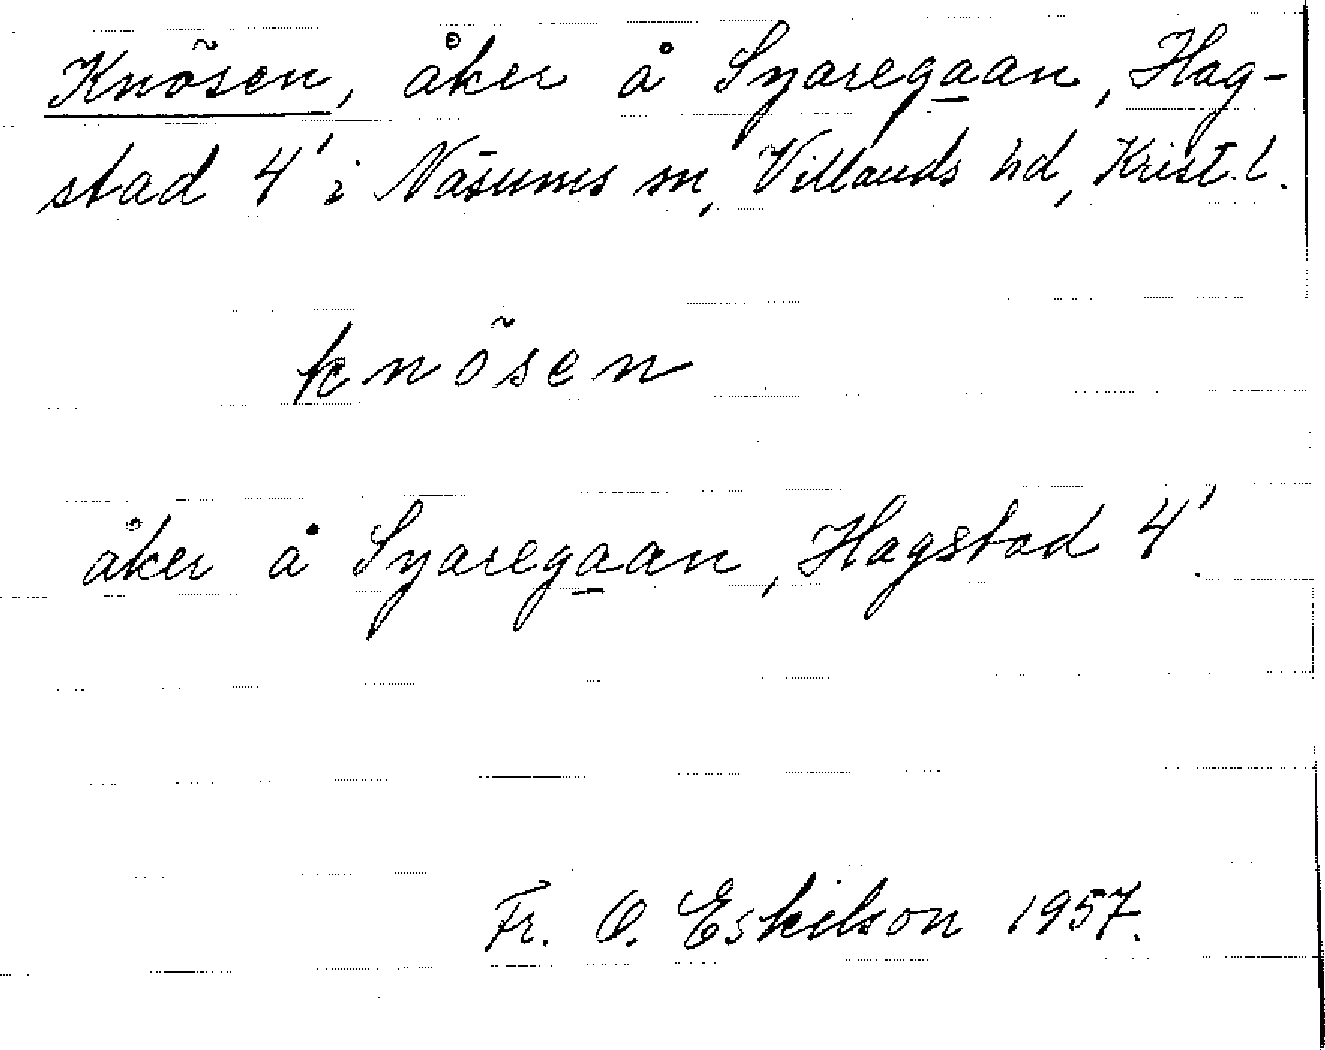 Knõsen, åker å Syaregaan, Hag-
stad 4' i Näsums sn, Villands hd, Krist. l.
knõsen
åker å Syaregaan, Hagstad 4'.
Fr. O. Eskilson 1957.